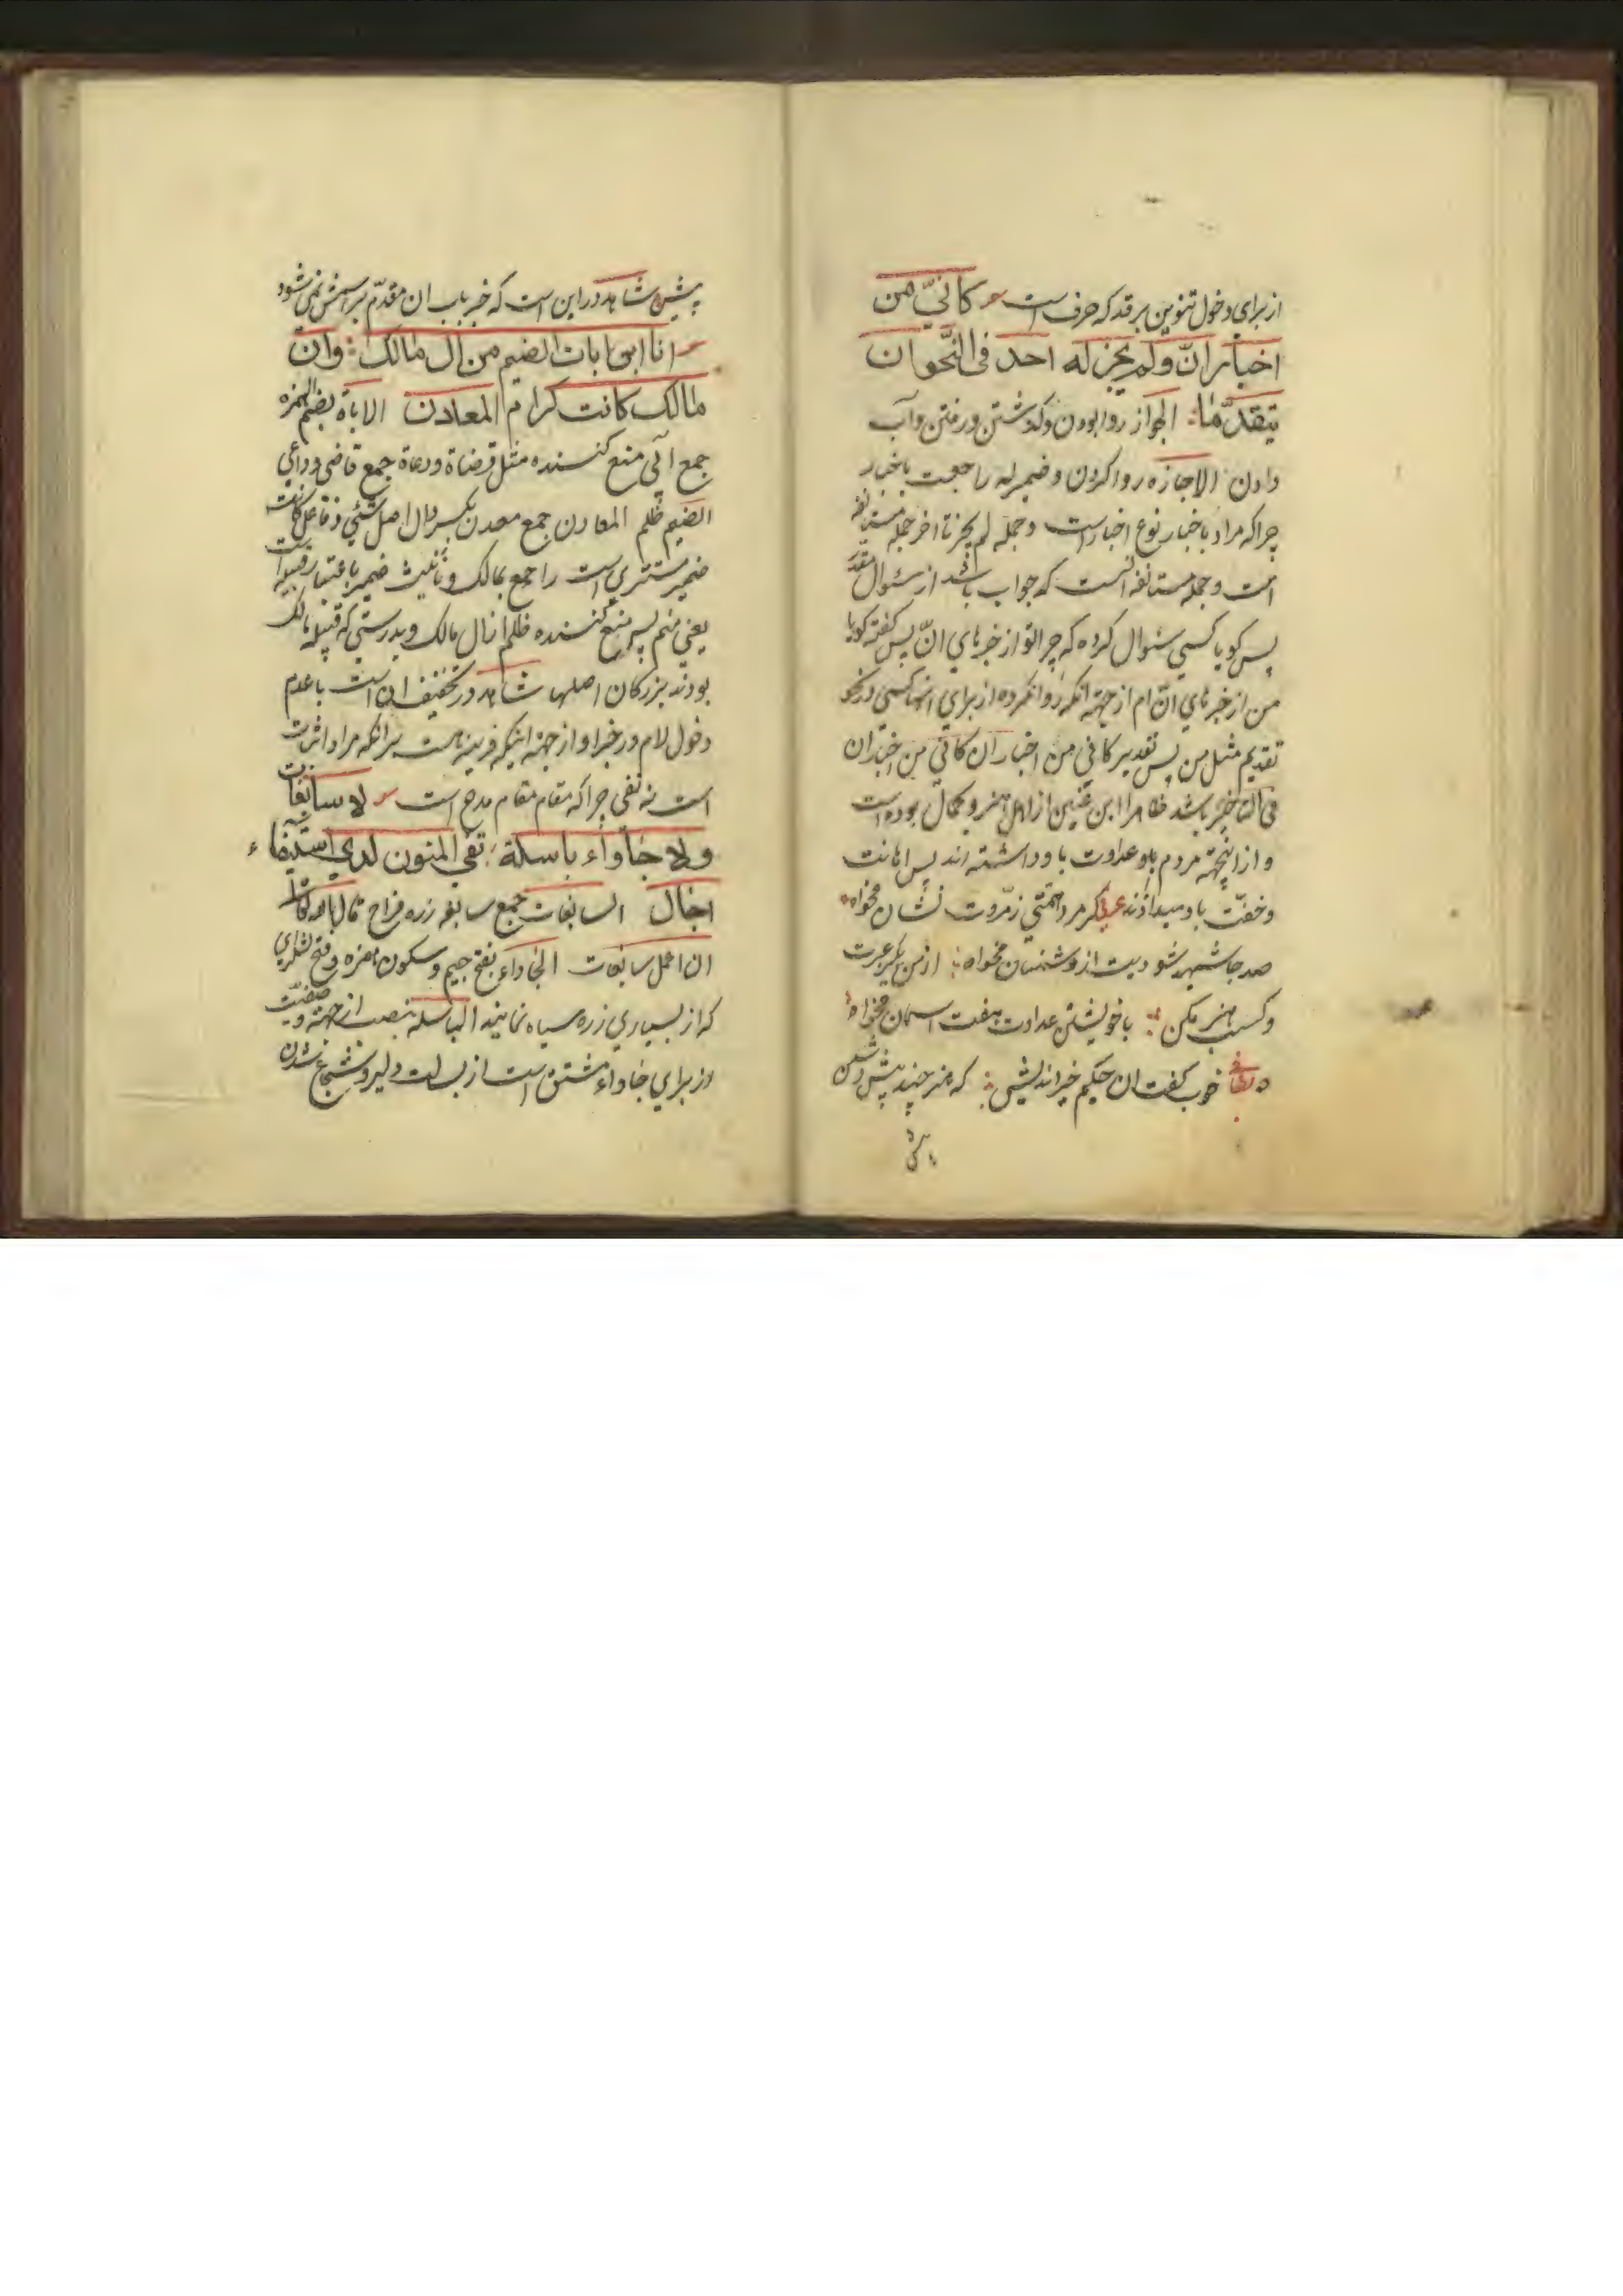 از برای دخول تنوین بر قد که حرف است كأنّي من
اخبار انّ ولم يجز له احد فى النّحو ان
يتقدّما الجواز روا بودن وگذشتن ورفتن وآب
دادن الاجازه روا کردن وضمیر له راجعست باخبار
چرا که مراد باخبار نوع اخبار است وجمله لم یجز تا اخر جمله مستانفه
است وجمله مستانفه انست که جواب باشد از سئوال مقدّر
پس کویا کسی سئوال کرده که چرا تو از خبرهای انّ پس گفته کویا
من از خبرهای انّ ام از جهة انکه روا نکرده از برای انها کسی در نحو
تقدیم مثل من پس تقدیر کانی من اخبار ان کانی من اخبار ان
فی التاخیر باشد ظاهرا ابن عنین از اهل هنر وکمال بوده است
واز اینجهة مردم باو عداوت باو داشته اند پس اهانت
وخفّت باو میدادند عرفی کر مرد همتی ز مروت نشان مخواه
صد جا شهید شو دیت از دشمنان مخواه از من بگیر عبرت
وکسب هنر مکن با خویشتن عداوت هفت اسمان مخواه
خوب کفت ان حکیم خیر اندیش که هنر چند پیش دشمن
پیش شاهد در این است که خبر باب ان مقدّم بر اسمش نمی شود
انا ابن ابات الضيم من ال مالك وان
مالك كانت كرام المعادن الاباة بضم الهمزه
جمع آبی منع کننده مثل قضاة ودعاة جمع قاضی وداعی
الضیم ظلم المعادن جمع معدن بکسر دال اصل شئی وفاعل کانت
ضمیر مستتری است راجع بمالک وتانیث ضمیر باعتبار قبیله است
یعنی منم پسر منع کننده ظلم از ال مالک وبدرستی که قبیله مالک
بودند بزرکان اصلها شاهد در تخفیف ان است با عدم
دخول لام در خبر او از جهة اینکه قرینه هست بر انکه مراد اثبات
است نه نفی چرا که مقام مقام مدح است لا سابغات
ولا جأواء باسلة تقى المنون لدى استيفاء
اجال السابغات جمع سابغه زره فراخ
ان اعمل سابغات الجاواء بفتح جیم وسکون همزه وفتح لشکری
که از بسیاری زره سیاه نمایند الباسلة بنصب از جهة
از برای جاواء مشتق است از بسالت دلیر وشجاع شدن